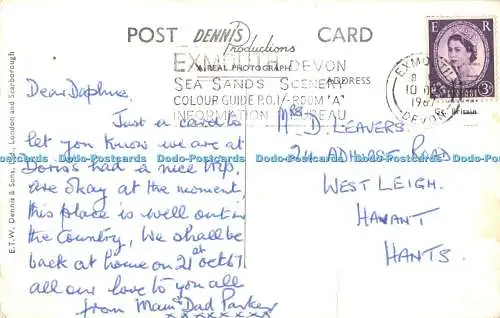 POST DENNIS Productions CARD
A REAL PHOTOGRAPH
EXMOUTH DEVON
SEA SANDS SCENERY
COLOUR GUIDE P.O.1/- ROOM "A"
INFORMATION BUREAU
ADDRESS
EXMOUTH
10
1967
DEVON
E R
3D
Gt. Britain.
E.T.W. Dennis & Sons, Ltd., London and Scarborough
Dear Daphne.
Just a card to
let you know we are at
Doris's had a nice trip,
are okay at the moment,
this place is well out in
the Country, We shall be
back at home on 21st oct 67.
all our love to you all
from Mam Dad Parker
xxxxxxxx
Mrs D. LEAVERS.
24 ADHURST ROAD
WEST LEIGH.
HAVANT
HANTS.
Dodo-Postcards Dodo-Postcards Dodo-Postcards Dodo-Postcards Dodo-Postcards Dodo-Postcards